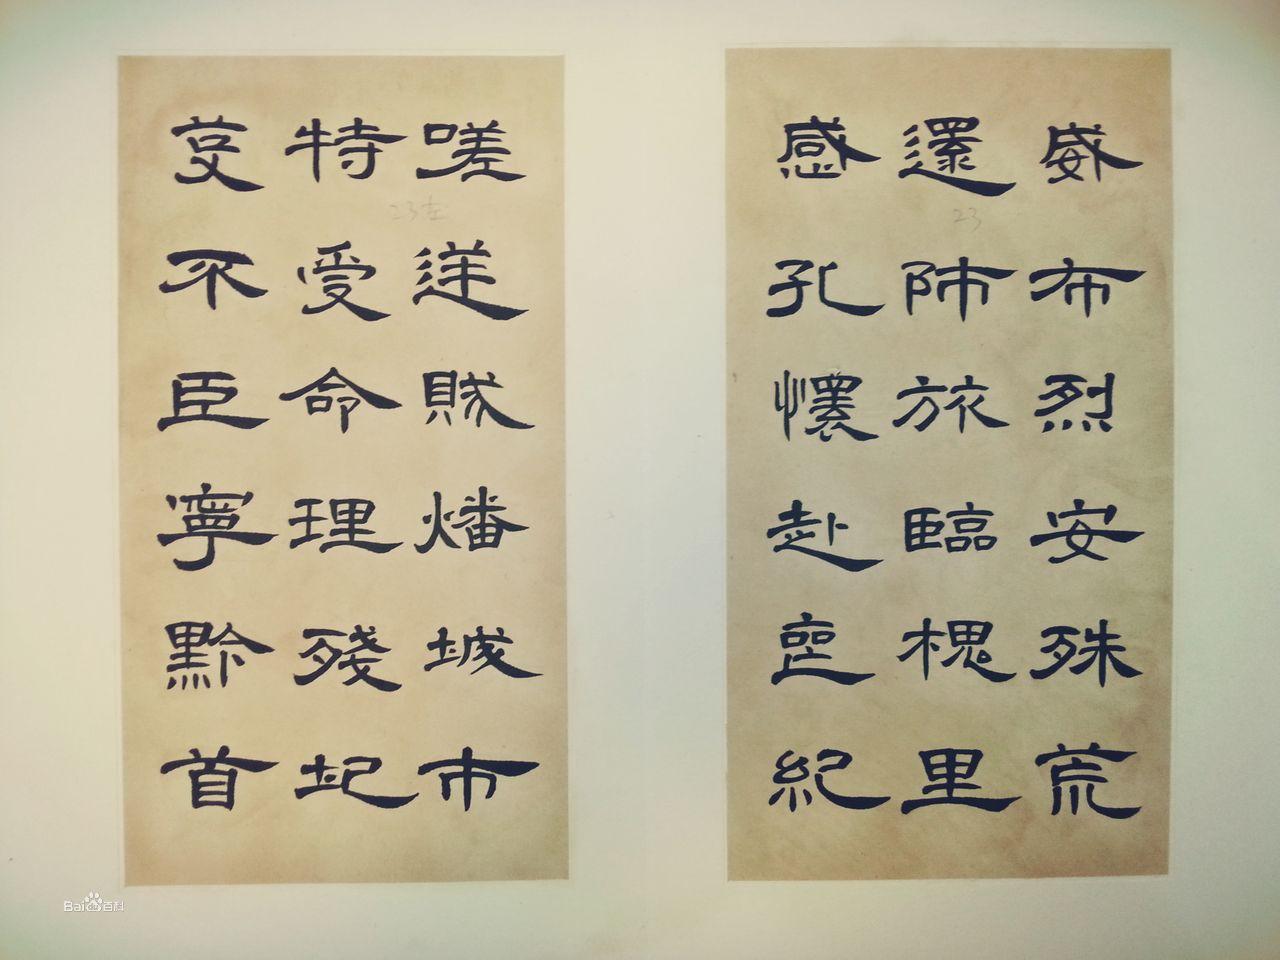 威布烈安殊荒
還師旅臨槐里
感孔懷赴喪紀
23
嗟逆賊燔城市
特受命理殘圮
芟不臣寧黔首
23左
Baidu百科